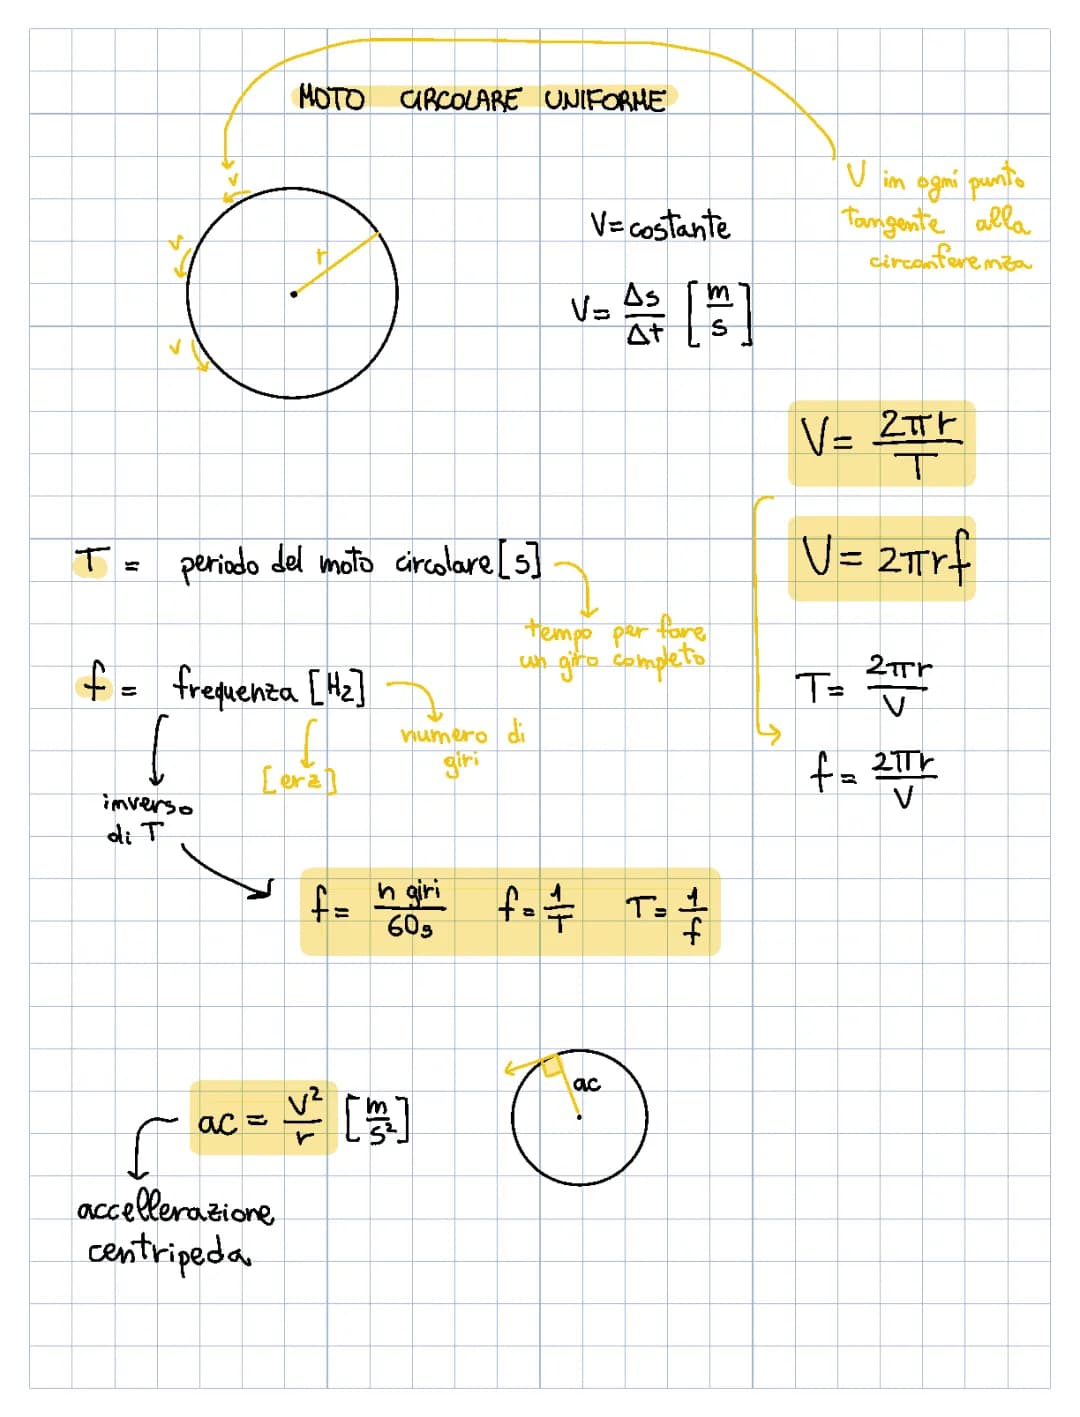 MOTO CIRCOLARE UNIFORME
V in ogni punto
tangente alla
circonferenza
v
v
v
r
V= costante
V= Δs/Δt [m/s]
V= 2πr/T
V= 2πrf
T = periodo del moto circolare [s]
tempo per fare
un giro completo
f = frequenza [Hz]
numero di
giri
[erz]
inverso
di T
T= 2πr/V
f= 2πr/V
f= n giri/60s f= 1/T T= 1/f
ac = V²/r [m/s²]
ac
accellerazione
centripeda